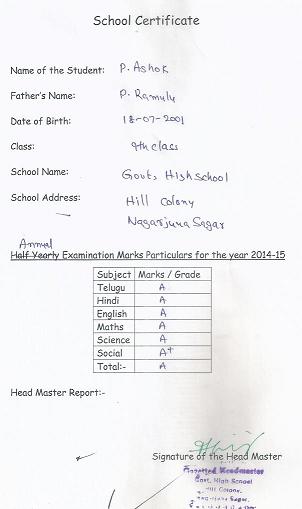 School Certificate
Name of the Student: P. Ashok
Father's Name: P. Ramulu
Date of Birth: 18-07-2001
Class: 9th class
School Name: Govt. High school
School Address: Hill Colony
Nagarjuna Sagar
Annual
Half Yearly Examination Marks Particulars for the year 2014-15
Subject Marks / Grade
Telugu A
Hindi A
English A
Maths A
Science A
Social A+
Total:- A
Head Master Report:-
Signature of the Head Master
Headmaster
Govt. High School
Hill Colony,
Sagar,